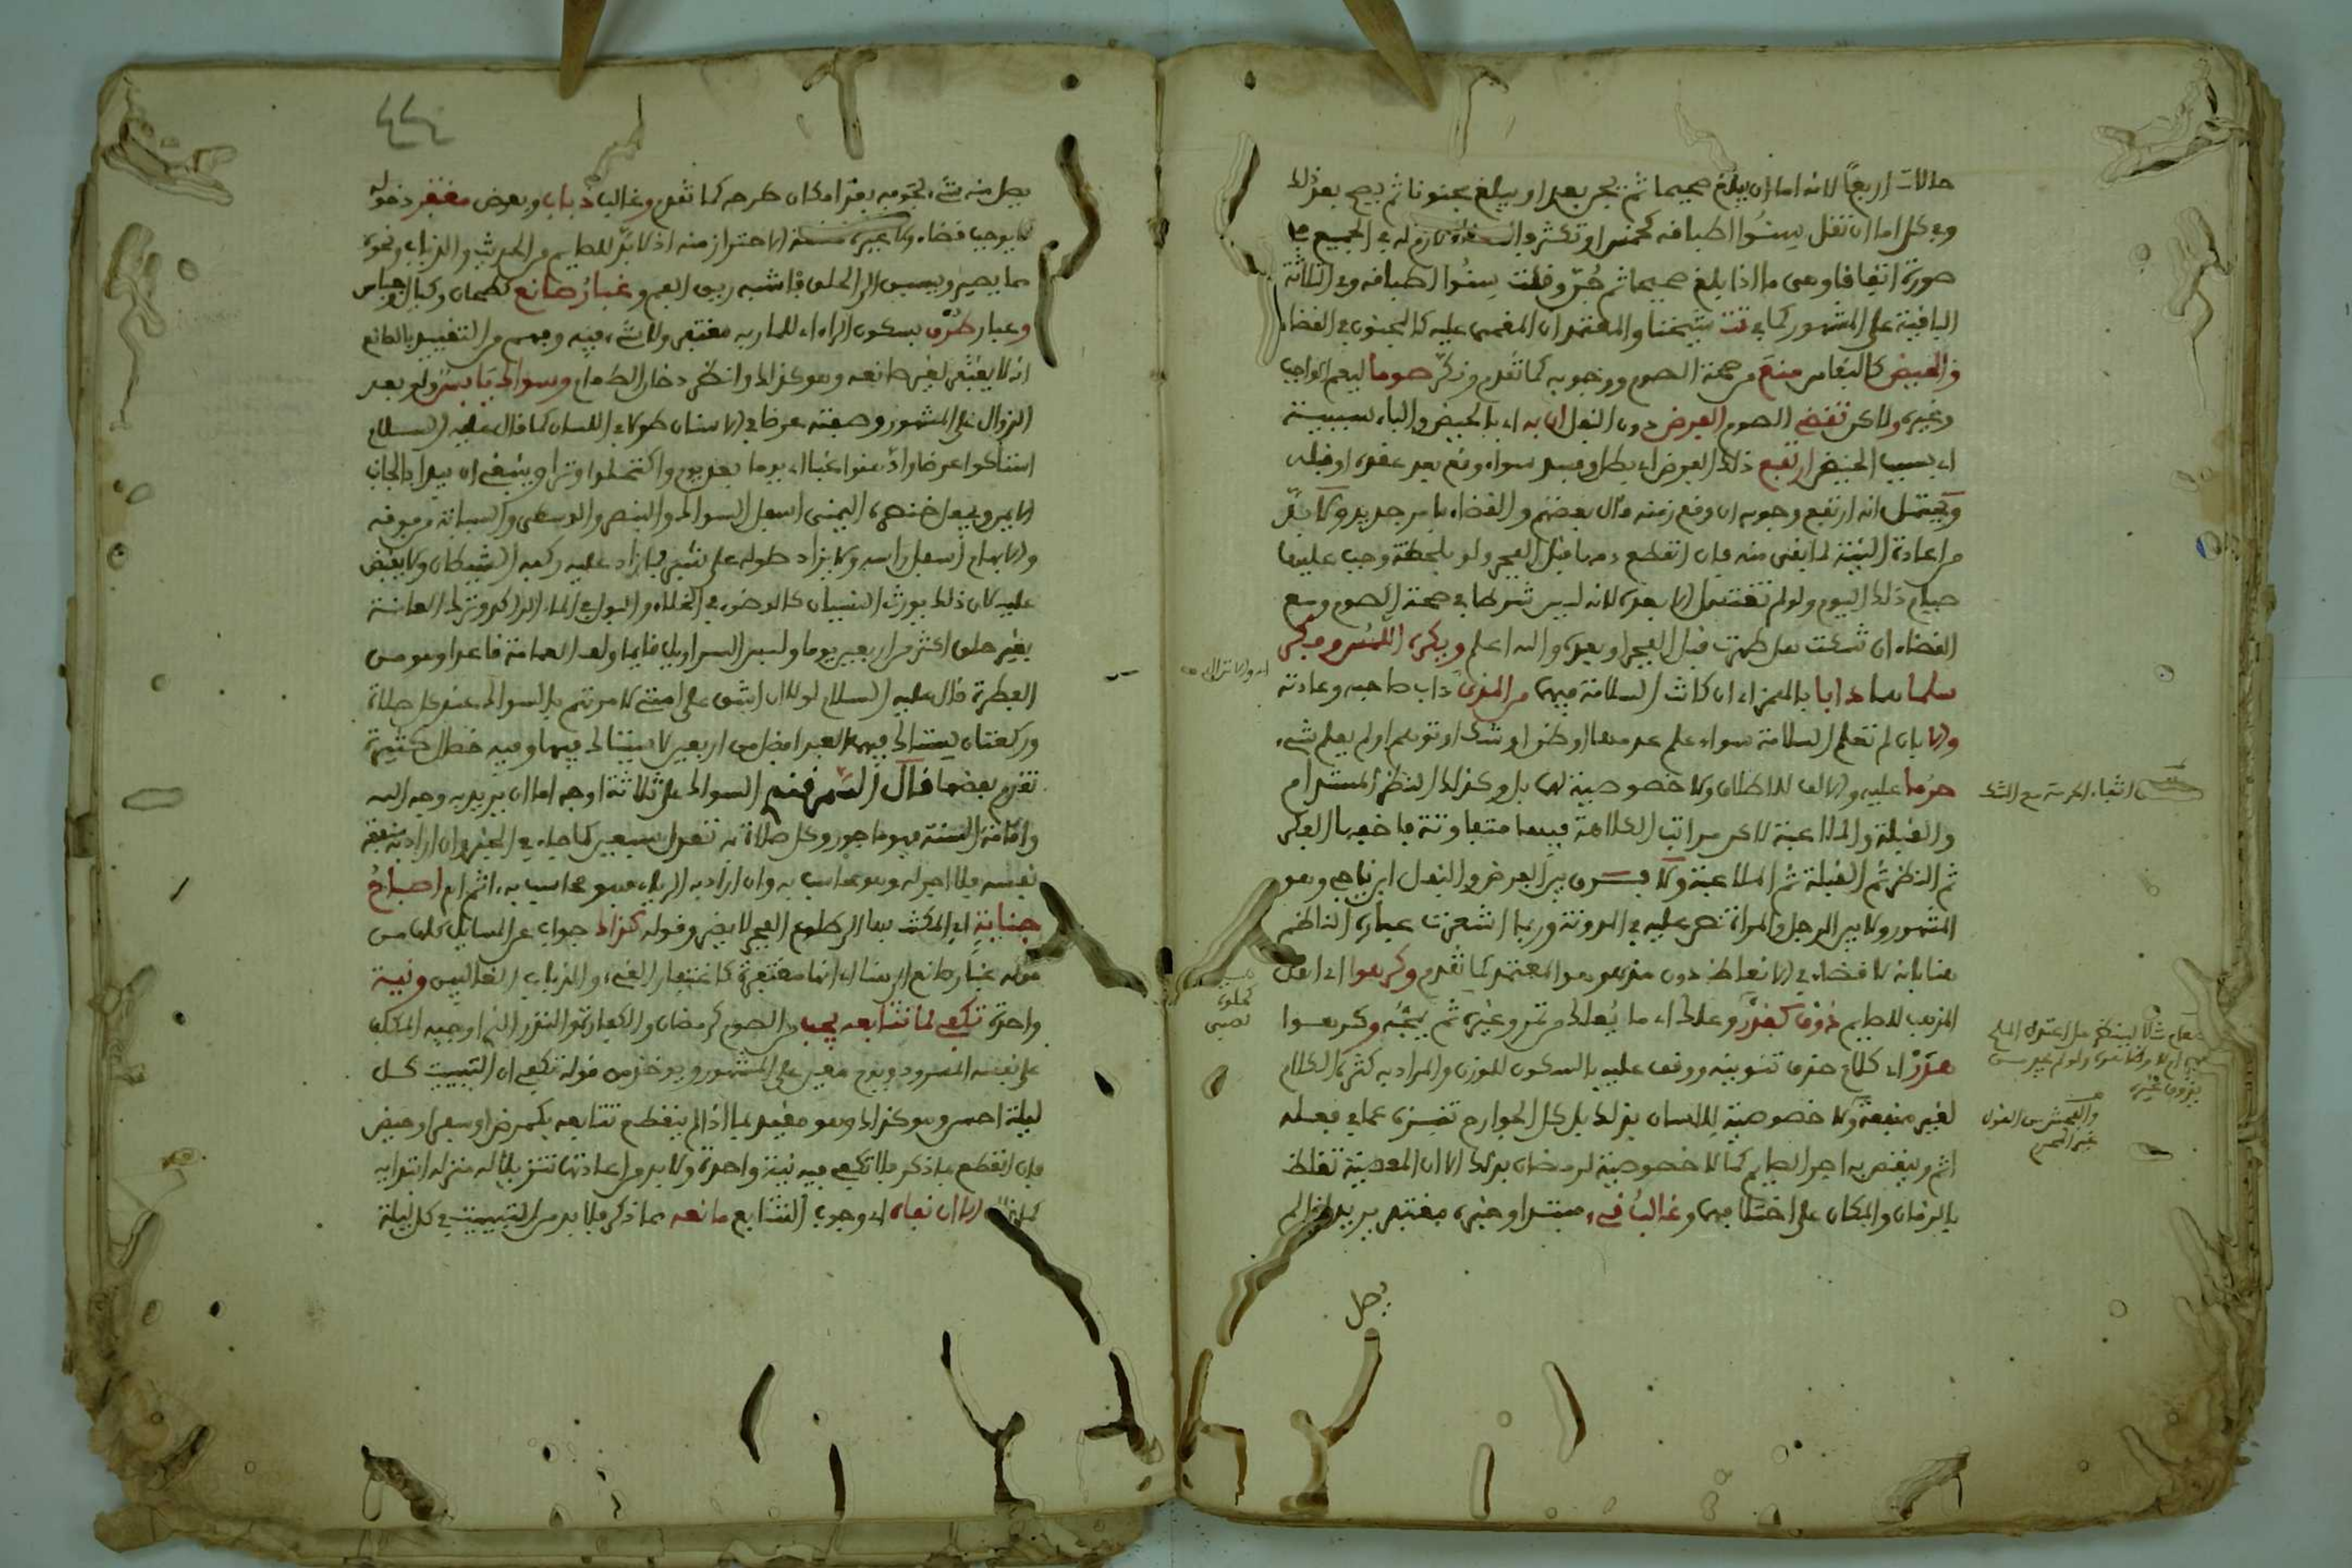 حالات اربعا لانه اما ان يبلغ صحيحا ثم يجن بعد او يبلغ مجنونا ثم يصح بعد ذلك
وفي كل اما ان تقل سنو اطباقه كخمس او تكثر في الجميع
صورة اتفاقا وهي ما اذا بلغ صحيحا ثم جن وقلت سنو اطباقه وفي الثلاثة
الباقية على المشهور كما في تت شيخنا والمعتمد ان المغمى عليه كالمجنون في القضاء
والحيض كالنفاس منع من صحة الصوم ووجوبه كما تقدم ونكر صوما ليعم الواجب
وغيره ولاكن تقضي الصوم الفرض دون النفل ان به اي بالحيض والباء سببية
اي بسبب الحيض ارتفع ذلك الفرض اي بطل وفسد سواء وقع بعد عقده او قبله
ويحتمل انه ارتفع وجوبه ان وقع زمنه قال بعضهم والقضاء بامر جديد ولا بد
من اعادة النية لما بقي منه فان انقطع دمها قبل الفجر ولو بلحظة وجب عليها
صيام ذلك اليوم ولو لم تغتسل الا بعده لانه ليس شرطا في صحة الصوم ومع
القضاء ان شكت هل طهرت قبل الفجر او بعده والله اعلم ويكره اللمس وفكر
سلما هما دابا بالهمز اي ان كانت السلامة فيهما من المذي داب صاحبه وعادته
والا بان لم تعلم السلامة سواء علم عدمها او ظن او شك او توهم او لم يعلم شيء
حرما عليه والالف للاطلاق ولا خصوصية لهما بل وكذلك النظر المستدام
والقبلة والملاعبة لاكن مراتب الكراهة فيها متفاوتة فاخفها الفكر
ثم النظر ثم القبلة ثم الملاعبة ولا فرق بين الفرض والنفل ابن ناجي وهو
المشهور ولا بين الرجل والمراة نص عليه في المدونة وربما اشعرت عبارة الناظم
هنا بانه لا قضاء في الانعاظ دون مذي وهو المعتمد كما تقدم وكرهوا اي اهل
المذهب للصايم ذوق كقدر وعلك اي ما يعلك من تمر وغيره ثم يمجه وكرهوا
هذر اي كلام حذف تنوينه ووقف عليه بالسكون للوزن والمراد به كثرة الكلام
لغير منفعة ولا خصوصية للسان بذلك بل كل الجوارح تنزه عما في فعله
اثم وينقص به اجر الصايم كما لا خصوصية لرمضان بذلك الا ان المعصية تغلظ
بالزمان والمكان على اختلافهما وغالب قيء مبتدا وخبره مغتفر يريد اذا لم
يصل
يصل منه شيء لجوفه بعد امكان طرحه كما تقدم وغالب ذباب وبعوض مغتفر دخوله
لا يوجب قضاء الاحتراز منه اذ لا بد للصايم من الحديث والذباب ونحوه
مما يطير ويسبق الى الحلق فاشبه ريق الفم وغبار صانع كطحان وكيال وجباس
وغبار طرق بسكون الراء للمار به مغتفر ولا شيء فيه وفهم من التقييد بالصانع
انه لا يغتفر لغير صانعه وهو كذلك وانظر دخان الطعام وسواك يابس ولو بعد
الزوال على المشهور وصفته عرضا في الاسنان طولا في اللسان كما قال عليه السلام
استاكوا عرضا وادهنوا غبا اي يوما بعد يوم واكتحلوا وترا وينبغي ان يبدا بالجانب
الايمن ويجعل خنصره اليمنى اسفل السواك والبنصر والوسطى والسبابة من فوقه
والابهام اسفل راسه ولا يزاد طوله على شبر فما زاد عليه ركبه الشيطان ولا يقبض
عليه لان ذلك يورث النسيان كالوضوء في الخلاء والبول في الماء الراكد وترك العانة
بغير حلق اكثر من اربعين يوما ولبس السراويل قايما ولف العمامة قاعدا وهو من
الفطرة قال عليه السلام لولا ان اشق على امتي لامرتهم بالسواك عند كل صلاة
وركعتان يستاك فيهما العبد افضل من اربعين لا يستاك فيها وفيه خصال كثيرة
تقدم بعضها قال السمرقندي السواك على ثلاثة اوجه اما ان يريد به وجه الله
واقامة السنة فهو ماجور وكل صلاة به تعدل سبعين كما جاء في الخبر وان اراد به منفعة
نفسه فلا اجر له وهو محاسب به وان اراد به الرياء فهو محاسب به اثم ام اصباح
جنابة اي المكث بها الى طلوع الفجر لا يضر وقوله كذاك جواب عن المسايل كلها من
قوله غبار صانع الى هنا اي انها مغتفرة كاغتفار القيء والذباب الغالبين ونية
واحدة تكفي لما تتابعه يجب من الصوم كرمضان والكفارة والنذر الذي اوجبه المكلف
على نفسه المسرود ويوم معين على المشهور ويوخذ من قوله تكفي ان التبييت كل
ليلة احسن وهو كذلك وهو مقيد بما اذا لم ينقطع تتابعه بكمرض او سفر او حيض
فان انقطع بما ذكر فلا تكفي فيه نية واحدة ولا بد من اعادتها تنزيلا له منزلة ابتدايه
الا ان نفاه اي وجوب التتابع مانعه مما ذكر فلا بد من التبييت في كل ليلة